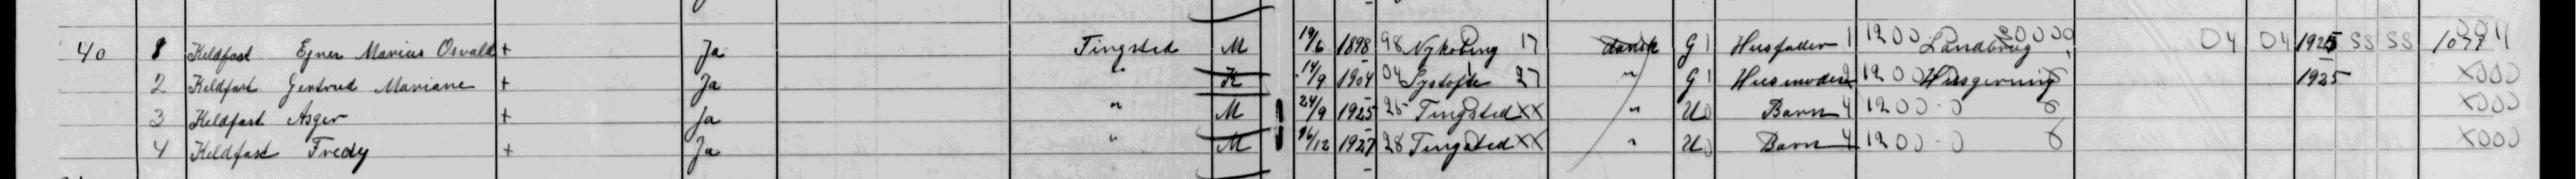 40 8 Keldfast Ejner Marius Osvald + Ja Tingsted M 19/6 1898 98 Nykobing 17 dansk G 1 Husfader 1 1200 Landbrug 20000 04 04 1925 SS SS
2 Keldfast Gertrud Mariane + Ja " K 14/9 1904 04 Systofte 27 " G 1 Husmoder 1200 Husgerning 1925 X000
3 Keldfast Asger + Ja " M 24/9 1925 25 Tingsted XX " U 0 Barn 4 1200 - 0 8 X000
4 Keldfast Fredy + Ja " M 16/12 1927 28 Tingsted XX " U 0 Barn 4 1200 - 0 8 X000